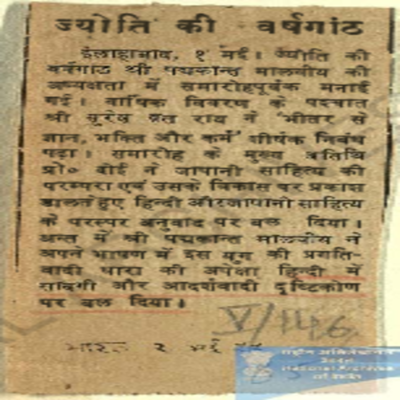 ज्योति की वर्षगांठ
इलाहाबाद, १ मई। ज्योति की
वर्षगांठ श्री पद्मकान्त मालवीय की
अध्यक्षता में समारोहपूर्वक मनाई
गई। वार्षिक विवरण के पश्चात
श्री सुरेश व्रत राय ने 'भीतर से
ज्ञान, भक्ति और कर्म' शीर्षक निबंध
पढ़ा। समारोह के मुख्य अतिथि
प्रो० दोई ने जापानी साहित्य की
परम्परा एवं उसके विकास पर प्रकाश
डालते हुए हिन्दी और जापानी साहित्य
के परस्पर अनुवाद पर बल दिया।
अन्त में श्री पद्मकान्त मालवीय ने
अपने भाषण में इस युग की प्रगति-
वादी धारा की अपेक्षा हिन्दी में
और आदर्शवादी दृष्टिकोण
पर बल दिया।
२ मई
राष्ट्रीय अभिलेखागार
National Archives